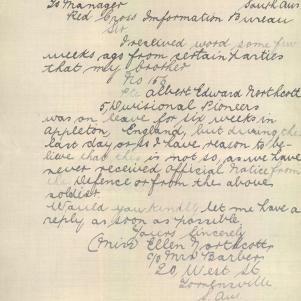 To Manager South Aus
Red Cross Information Bureau
Sir
I received word some few
weeks ago from certain parties
that my brother
No 166
Pte Albert Edward Northcott
5 Divisional Pioneers
was on leave for six weeks in
Appleton, England, but during the
last day or so I have reason to be-
lieve that this is not so, as we have
never received Official Notice from
the Defence or from the above
soldier
Would you kindly let me have a
reply as soon as possible
Yours Sincerely
(Miss) Ellen Northcott
c/o Mrs Barber
20 West St
Torrensville
S. Aus